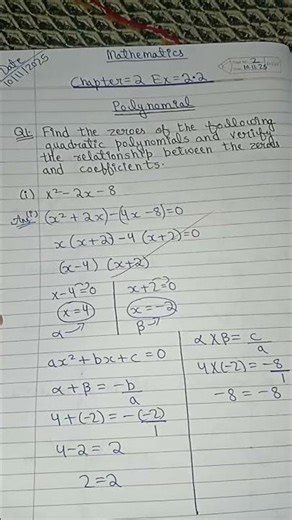 Date
10/11/2025
Mathematics
2
10.11.25
Chapter=2 Ex=2.2
Polynomial
Q1. Find the zeroes of the following
quadratic polynomials and verify
the relationship between the zeroes
and coefficients.
(i) x²-2x-8
Ans(i) (x²+2x)-(4x-8)=0
x(x+2)-4(x+2)=0
(x-4) (x+2)
x-4=0
x=4
α
x+2=0
x=-2
β
ax²+bx+c=0
α+β=-b/a
4+(-2)=-(-2)/1
4-2=2
2=2
α×β=c/a
4×(-2)=-8/1
-8=-8